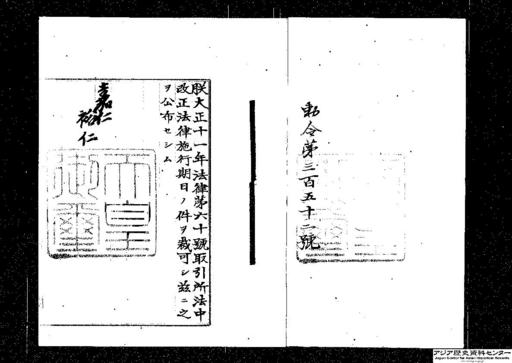 勅令第三百五十二號
朕大正十一年法律第六十號取引所法中
改正法律施行期日ノ件ヲ裁可シ茲ニ之
ヲ公布セシム
嘉仁
裕仁
天皇御璽
アジア歴史資料センター
Japan Center for Asian Historical Records